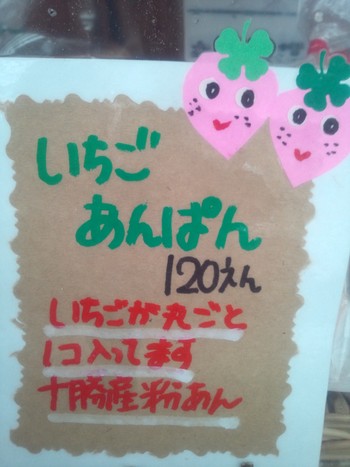 いちご
あんぱん
120えん
いちごが丸ごと
1コ入ってます
十勝産粉あん